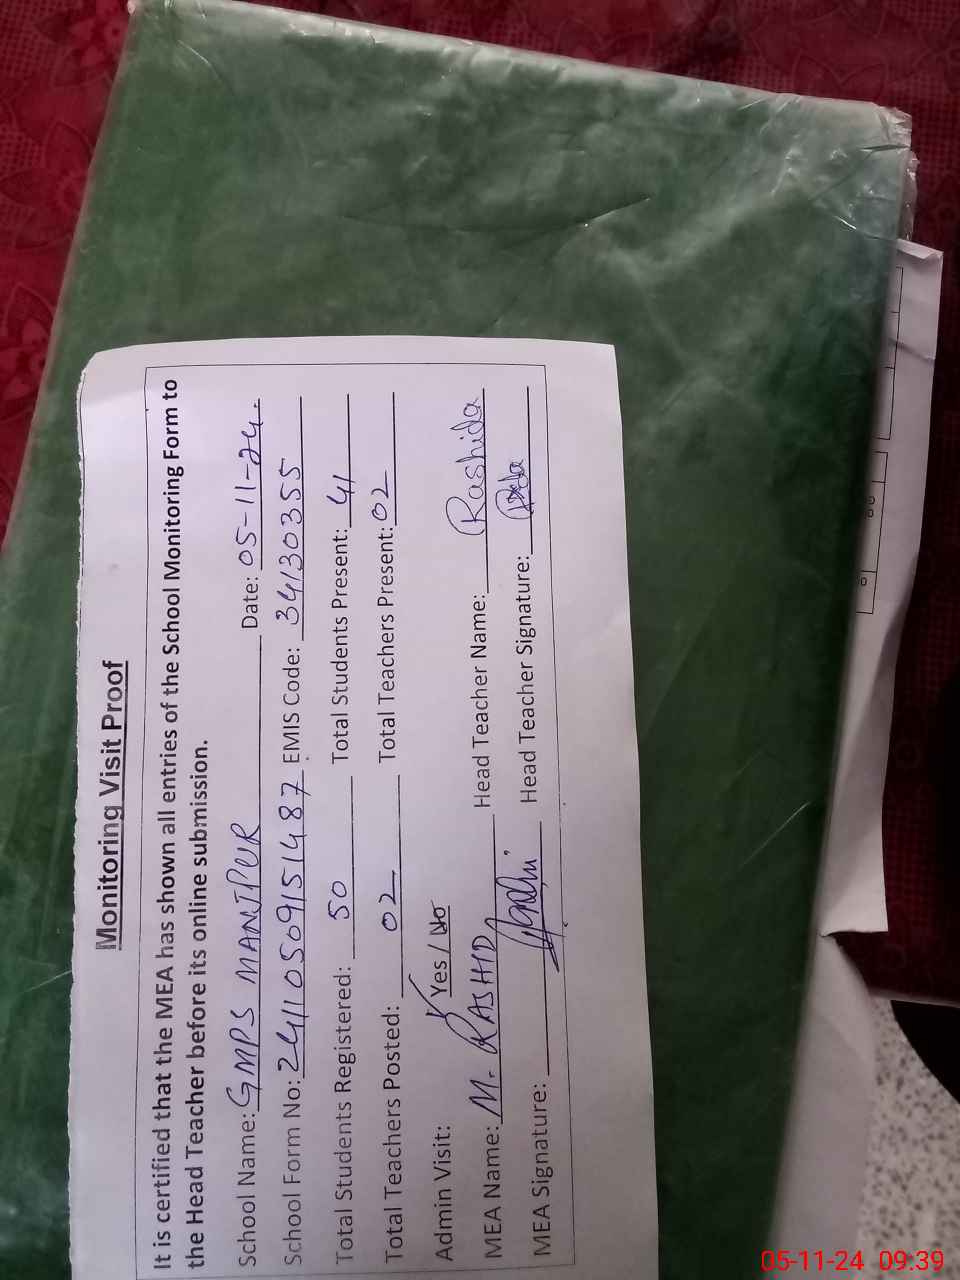 Monitoring Visit Proof
It is certified that the MEA has shown all entries of the School Monitoring Form to
the Head Teacher before its online submission.
School Name: GMPS MANJPUR Date: 05-11-24.
School Form No: 24110509151487 EMIS Code: 34130355
Total Students Registered: 50 Total Students Present: 41
Total Teachers Posted: 02 Total Teachers Present: 02
Admin Visit: Yes / No
MEA Name: M. RASHID Head Teacher Name: Rashida
MEA Signature: Head Teacher Signature:
05-11-24 09:39